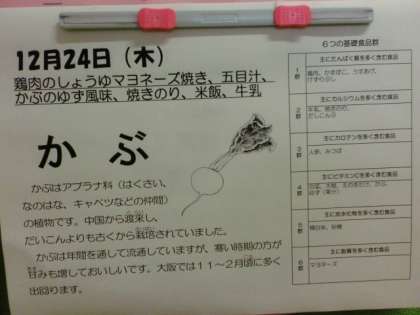 12月24日（木）
鶏肉のしょうゆマヨネーズ焼き、五目汁、
かぶのゆず風味、焼きのり、米飯、牛乳
かぶ
かぶはアブラナ科（はくさい、
なのはな、キャベツなどの仲間）
の植物です。中国から渡来し、
だいこんよりも古くから栽培されていました。
かぶは年間を通して流通していますが、寒い時期の方が
甘みも増しておいしいです。大阪では11～2月頃に多く
出回ります。
６つの基礎食品群
主にたんぱく質を多く含む食品
1群
鶏肉、かまぼこ、うすあげ、
けずりぶし
主にカルシウムを多く含む食品
2群
牛乳、焼きのり、
だしこんぶ
主にカロテンを多く含む食品
3群
人参、みつば
主にビタミンCを多く含む食品
4群
主に炭水化物を多く含む食品
5群
精白米、砂糖
主に脂質を多く含む食品
6群
マヨネーズ